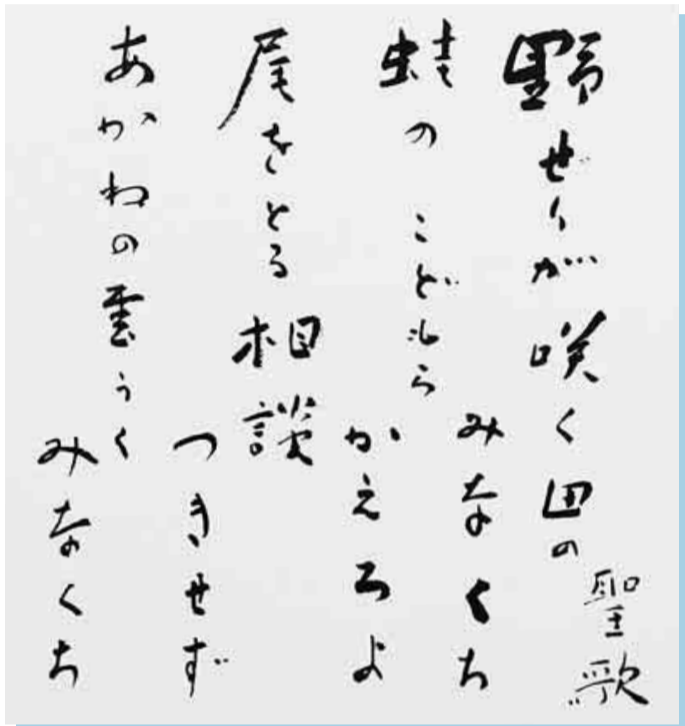 野ぜりが咲く田の
みなくち
蛙の こどもら
かえろよ
尾をとる相談
つきせず
あかねの雲うく
みなくち
聖歌